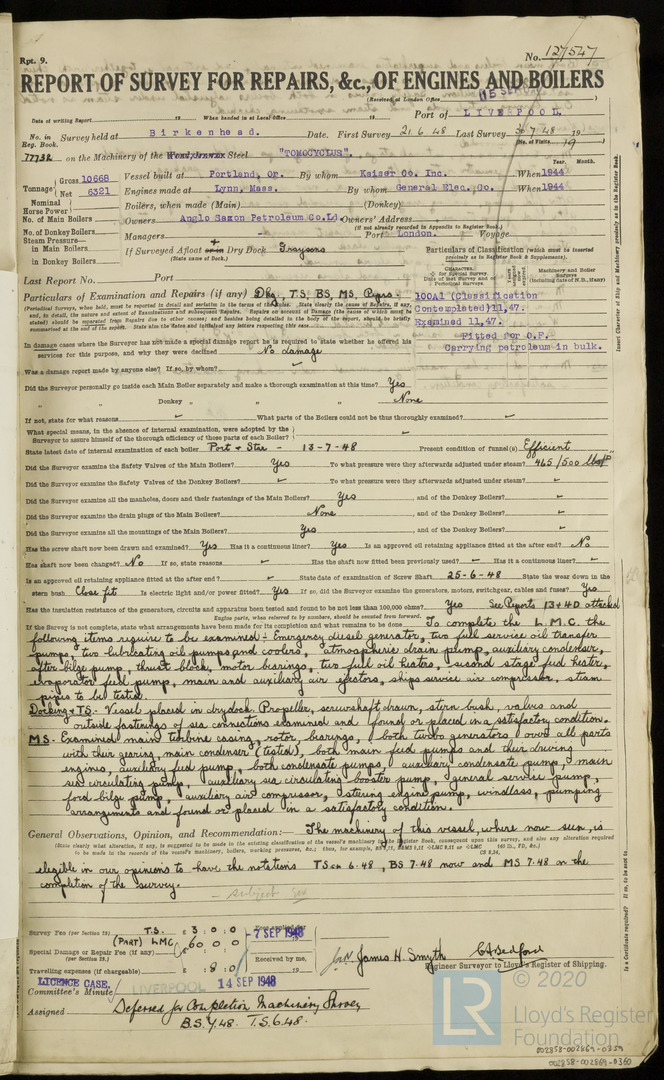 Rpt. 9.
No. 127547
REPORT OF SURVEY FOR REPAIRS, &c., OF ENGINES AND BOILERS
(Received at London Office 15 SEP )
Date of writing Report 19 When handed in at Local Office 19 Port of LIVERPOOL.
No. in Reg. Book. Survey held at Birkenhead. Date. First Survey 21.6.48 Last Survey 30.7.48 19
(No. of Visits 19
77732 on the Machinery of the Wood, Iron or Steel "TOMOCYCLUS".
Year. Month.
Tonnage Gross 10668 Vessel built at Portland, Or. By whom Kaiser Co. Inc. When 1944
Net 6321 Engines made at Lynn, Mass. By whom General Elec., Co. When 1944
Nominal Horse Power Boilers, when made (Main) (Donkey)
No. of Main Boilers Owners Anglo Saxon Petroleum Co. Ld. Owners' Address
(If not already recorded in Appendix to Register Book.)
No. of Donkey Boilers Managers Port London. Voyage
Steam Pressure in Main Boilers If Surveyed Afloat or in Dry Dock Graysons
in Donkey Boilers (State name of Dock.)
Particulars of Classification (which must be inserted precisely as in Register Book & Supplements).
Last Report No. Port
Particulars of Examination and Repairs (if any) Dkg. T.S, BS, MS, Reprs.
100A1 (Classification
Contemplated) 11,47.
Examined 11,47.
Fitted for O.F.
Carrying petroleum in bulk.
In damage cases where the Surveyor has not made a special damage report he is required to state whether he offered his
services for this purpose, and why they were declined No damage
Was a damage report made by anyone else? If so, by whom?
Did the Surveyor personally go inside each Main Boiler separately and make a thorough examination at this time? Yes
" " Donkey " " " None
If not, state for what reasons What parts of the Boilers could not be thus thoroughly examined?
What special means, in the absence of internal examination, were adopted by the
Surveyor to assure himself of the thorough efficiency of those parts of each Boiler?
State latest date of internal examination of each boiler Port & Star - 13-7-48 Present condition of funnel(s) Efficient
Did the Surveyor examine the Safety Valves of the Main Boilers? Yes To what pressure were they afterwards adjusted under steam? 465/500 lbs
Did the Surveyor examine the Safety Valves of the Donkey Boilers? To what pressure were they afterwards adjusted under steam?
Did the Surveyor examine all the manholes, doors and their fastenings of the Main Boilers? Yes, and of the Donkey Boilers?
Did the Surveyor examine the drain plugs of the Main Boilers? None, and of the Donkey Boilers?
Did the Surveyor examine all the mountings of the Main Boilers? Yes, and of the Donkey Boilers?
Has the screw shaft now been drawn and examined? Yes Has it a continuous liner? Yes Is an approved oil retaining appliance fitted at the after end? No
Has shaft now been changed? No If so, state reasons Has the shaft now fitted been previously used? Has it a continuous liner?
Is an approved oil retaining appliance fitted at the after end? State date of examination of Screw Shaft 25-6-48 State the wear down in the
stern bush Close fit Is electric light and/or power fitted? Yes If so, did the Surveyor examine the generators, motors, switchgear, cables and fuses? Yes
Has the insulation resistance of the generators, circuits and apparatus been tested and found to be not less than 100,000 ohms? Yes See Reports 13 & 4D attached
Engine parts, when referred to by numbers, should be counted from forward.
If the Survey is not complete, state what arrangements have been made for its completion and what remains to be done To complete the L.M.C. the
following items require to be examined :- Emergency diesel generator, two fuel service oil transfer
pumps, two lubricating oil pumps and coolers, atmospheric drain pump, auxiliary condenser,
after bilge pump, thrust block, motor bearings, two fuel oil heaters, second stage feed heater,
evaporator feed pump, main and auxiliary air ejectors, ships service air compressor, steam
pipes to be tested.
Docking & TS.- Vessel placed in drydock. Propeller, screwshaft drawn, stern bush, valves and
outside fastenings of sea connections examined and found or placed in a satisfactory condition.
MS.- Examined main turbine casing, rotor, bearings, both turbo generators over all parts
with their gearing, main condenser (tested), both main feed pumps and their driving
engines, auxiliary feed pump, both condensate pumps, auxiliary condensate pump, main
sea circulating pump, auxiliary sea circulating booster pump, general service pump,
ford bilge pump, auxiliary air compressor, steering engine pump, windlass, pumping
arrangements and found or placed in a satisfactory condition.
General Observations, Opinion, and Recommendation:— The machinery of this vessel, where now seen, is
(State clearly what alteration, if any, is suggested to be made in the existing classification of the vessel's machinery in the Register Book, consequent upon this survey, and also any alteration required
eligible in our opinions to have the notations TS on 6.48, BS 7.48 now and MS 7.48 on the
completion of the survey.
- subject
Survey Fee (per Section 29) T.S. £ 3 : 0 : 0
(PART) LMC 60 0 0
Special Damage or Repair Fee (if any) £
(per Section 29.)
Travelling expenses (if chargeable) £ : 8 : 0
Fees applied for
-7 SEP 1948
Received by me,
19
James H. Smyth C.A. Bedford
Engineer Surveyor to Lloyd's Register of Shipping.
LICENCE CASE. LIVERPOOL 14 SEP 1948
Committee's Minute
Assigned Deferred for Completion Machinery Survey
B.S. 7.48. T.S. 6.48.
Insert Character of Ship and Machinery precisely as in the Register Book.
Is a Certificate required? If so, to be sent to
© 2020
LR
Lloyd's Register
Foundation
002858-002869-0359
002858-002869-0360